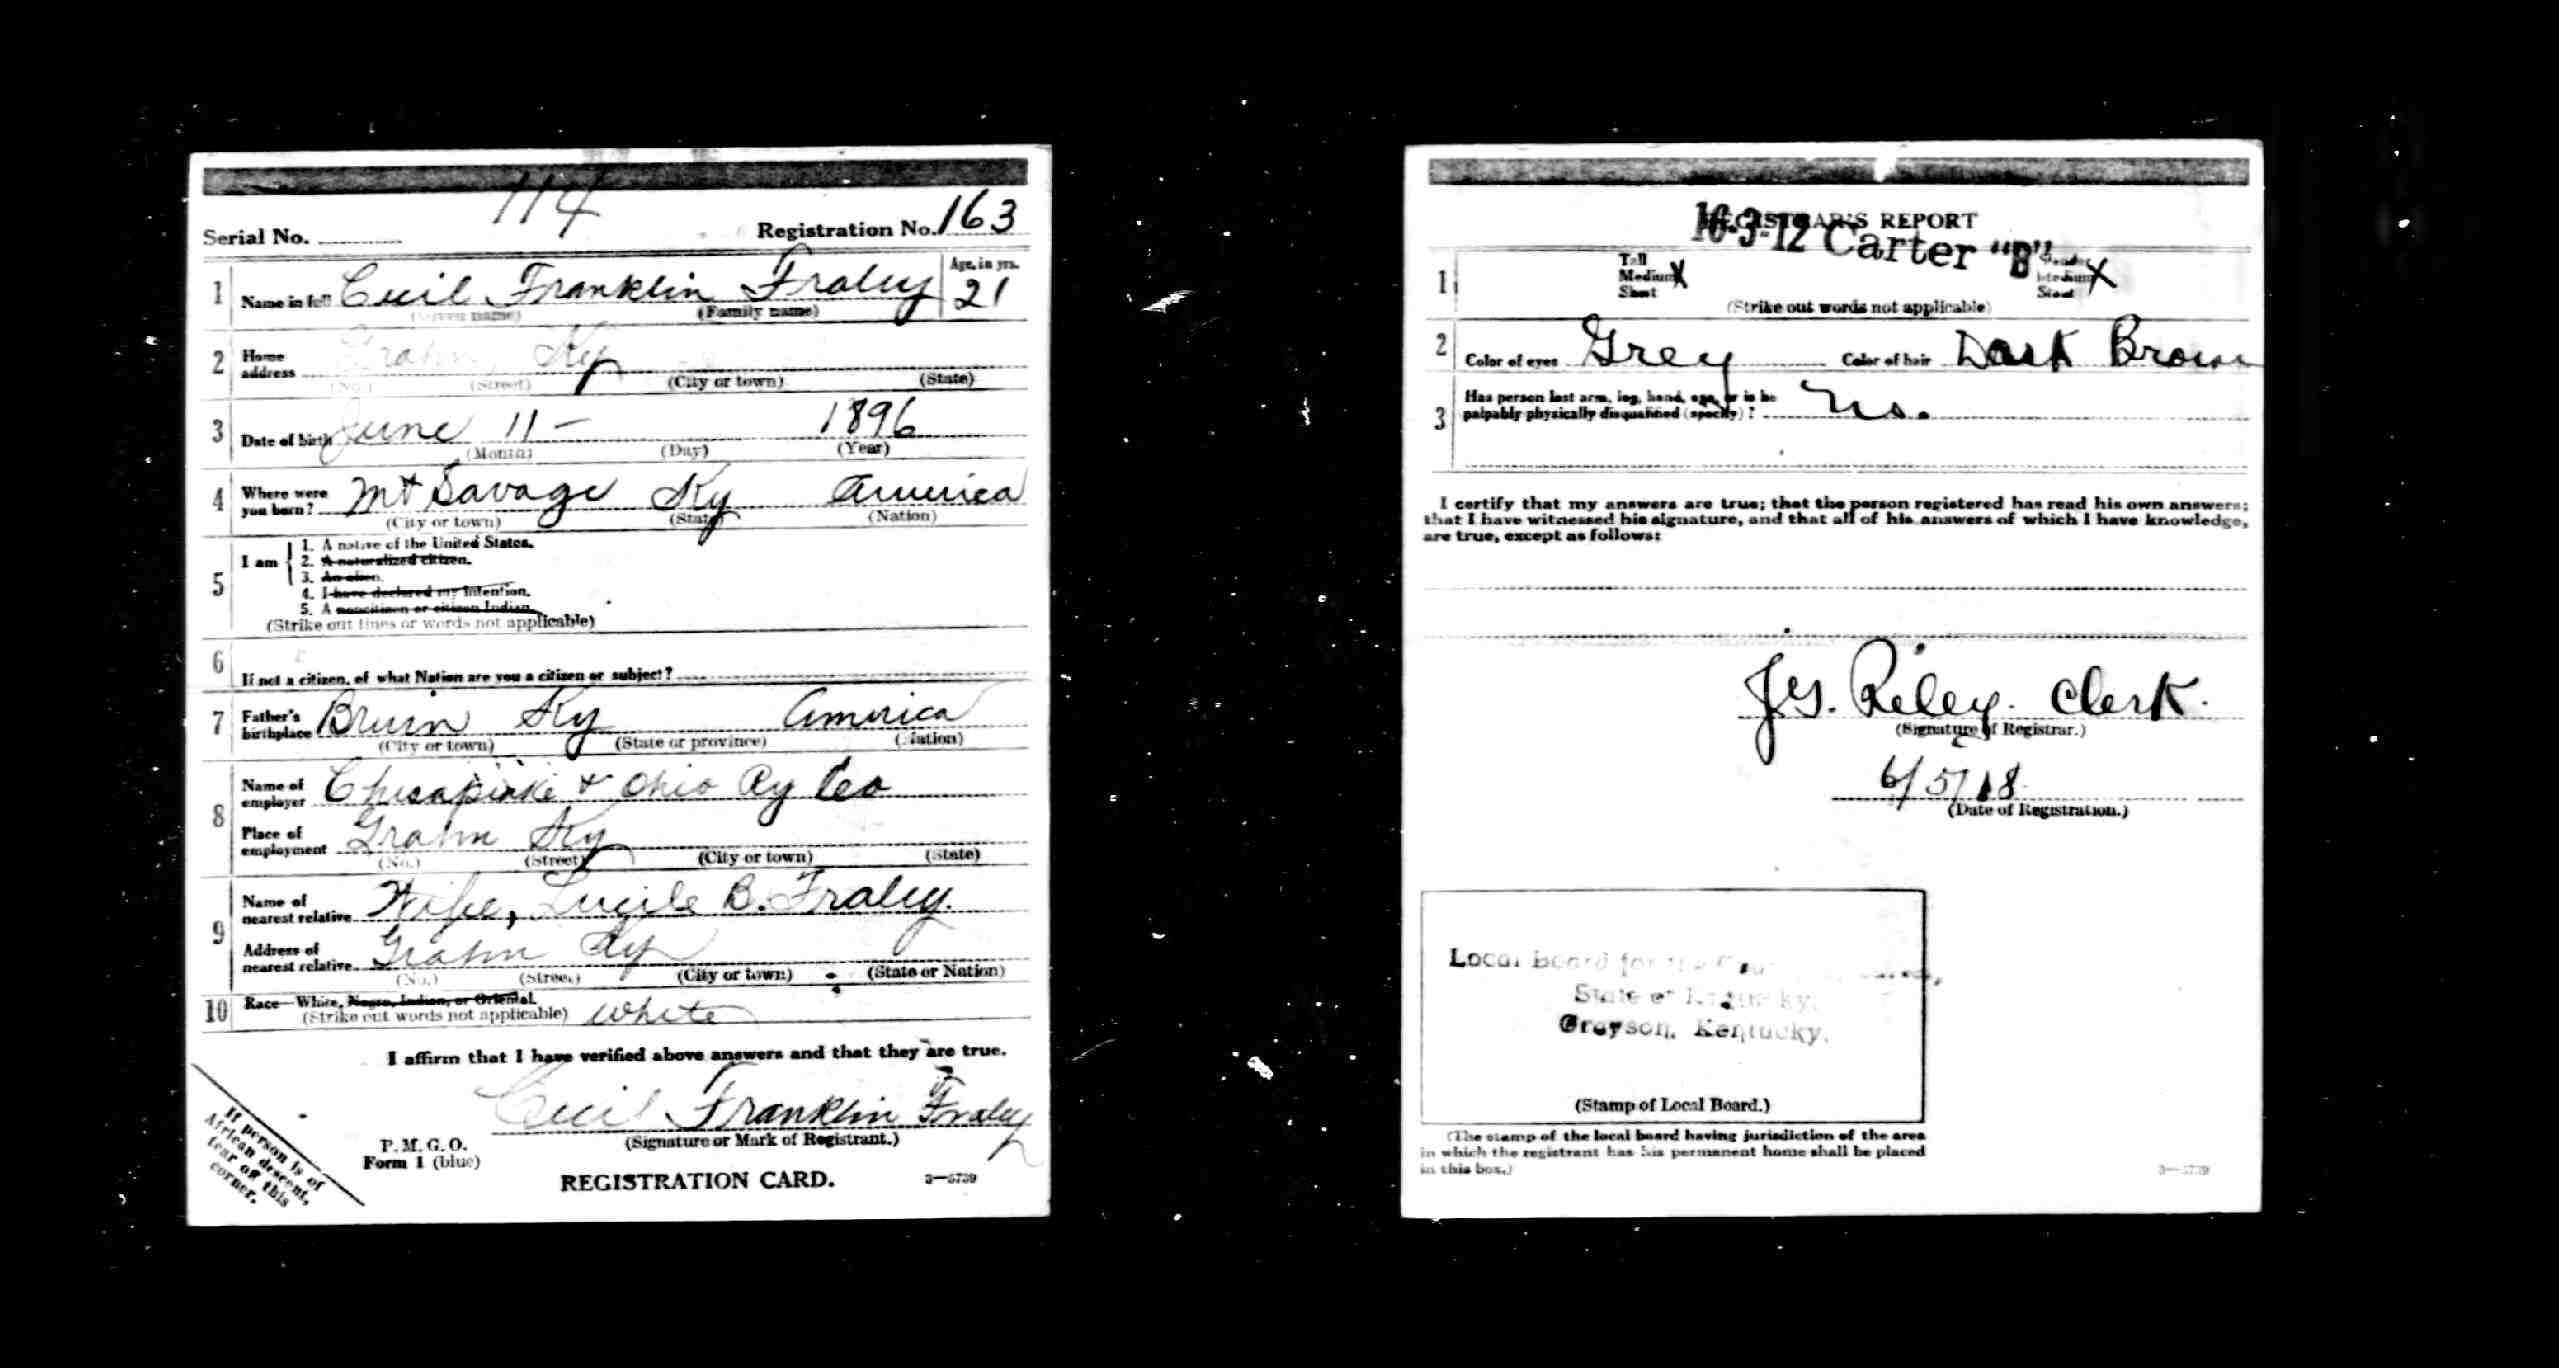 114
Serial No. Registration No. 163
1 Name in full Cecil Franklin Fraley Age, in yrs. 21
(Given name) (Family name)
2 Home address Grahn, Ky
(No.) (Street) (City or town) (State)
3 Date of birth June 11 - 1896
(Month) (Day) (Year)
4 Where were you born? Mt Savage Ky America
(City or town) (State) (Nation)
5 I am
1. A native of the United States.
2. A naturalized citizen.
3. An alien.
4. I have declared my intention.
5. A noncitizen or citizen Indian.
(Strike out lines or words not applicable)
6 If not a citizen, of what Nation are you a citizen or subject?
7 Father's birthplace Bruin Ky America
(City or town) (State or province) (Nation)
8 Name of employer Chesapeake & Ohio Ry Co
Place of employment Grahn Ky
(No.) (Street) (City or town) (State)
9 Name of nearest relative Wife, Lucile B. Fraley.
Address of nearest relative Grahn Ky
(No.) (Street) (City or town) (State or Nation)
10 Race—White, Negro, Indian, or Oriental.
(Strike out words not applicable) White
I affirm that I have verified above answers and that they are true.
Cecil Franklin Fraley
(Signature or Mark of Registrant.)
P. M. G. O.
Form 1 (blue)
REGISTRATION CARD. 3—5739
If person is of
African descent,
tear off this
corner.
REGISTRAR'S REPORT
16-3-12 Carter "B"
1 Tall Slender
Medium X Medium X
Short Stout
(Strike out words not applicable)
2 Color of eyes Grey Color of hair Dark Brown
3 Has person lost arm, leg, hand, eye, or is he
palpably physically disqualified (specify)? No.
I certify that my answers are true; that the person registered has read his own answers;
that I have witnessed his signature, and that all of his answers of which I have knowledge,
are true, except as follows:
Jas. Riley. Clerk.
(Signature of Registrar.)
6/5/18
(Date of Registration.)
Local Board for the
State of Kentucky.
Grayson, Kentucky.
(Stamp of Local Board.)
(The stamp of the local board having jurisdiction of the area
in which the registrant has his permanent home shall be placed
in this box.)
3—5739